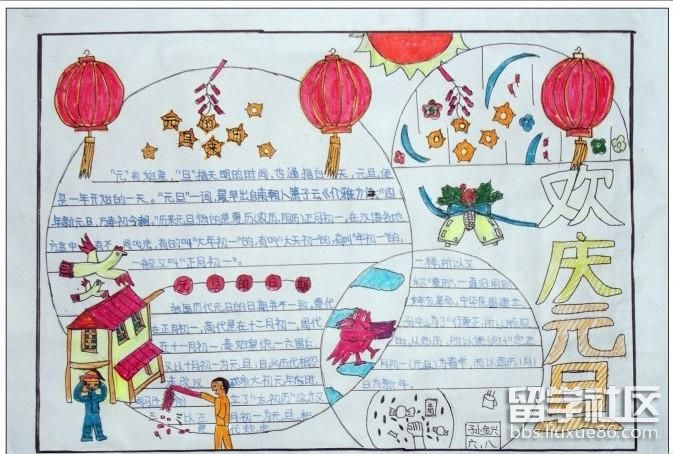 元旦的来历
"元"有始意、"旦"指天明的时间,也通指白天,元旦,便
是一年开始的一天。"元旦"一词,最早出自南朝人萧子云《介雅》诗:"四
年新元旦,万寿初今朝。"历来元旦指的是夏历(农历、阴历)正月初一。在汉语各地
方言中有不同叫法,有的叫"大年初一"的,有叫"大天初一"的,有叫"年初一"的,
一般又叫"正月初一"。
元旦的日期
我国历代元旦的日期并不一致。夏代
在正月初一,商代是在十二月初一,周代
在十一月初一,秦始皇统一六国后,
又以十月初一为元旦,自此历代相沿
未改汉
以正月初一为元旦,和
夏代
一样,所以又
称"夏历",一直沿用到
辛亥革命。中华民国建立,
孙中山为了"行夏正,所以顺农
时,从西历,所以便统计"定正
月初一(元旦)为春节,而以西历1月1
日为新年。
欢庆元旦
孙金兴
六.八
留学社区
bbs.liuxue86.com